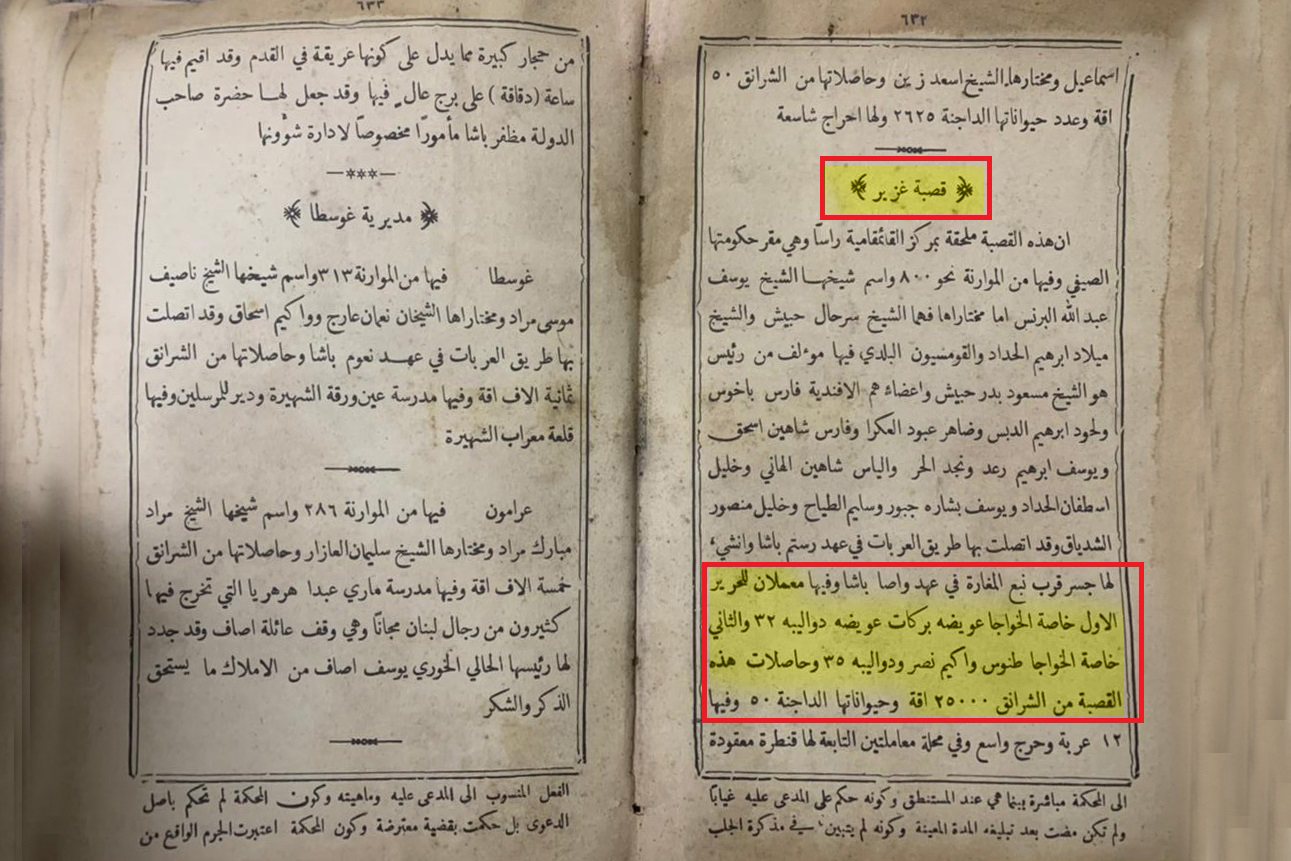 ٦٣٢
اسماعيل ومختارها الشيخ اسعد زين وحاصلاتها من الشرانق ٥٠
اقة وعدد حيواناتها الداجنة ٢٦٢٥ ولها احراج شاسعة
﴿ قصبة غزير ﴾
ان هذه القصبة ملحقة بمركز القائمقامية راسًا وهي مقر حكومتها
الصيفي وفيها من الموارنة نحو ٨٠٠ واسم شيخها الشيخ يوسف
عبد الله البرنس اما مختاراها فهما الشيخ سرحال حبيش والشيخ
ميلاد ابرهيم الحداد والقومسيون البلدي فيها موءلف من رئيس
هو الشيخ مسعود بدر حبيش واعضاء هم الافندية فارس باخوس
ولحود ابرهيم الدبس وضاهر عبود العكرا وفارس شاهين اسحق
ويوسف ابرهيم رعد ونجد الحر والياس شاهين الهاني وخليل
اسطفان الحداد ويوسف بشاره جبور وسليم الطياح وخليل منصور
الشدياق وقد اتصلت بها طريق العربات في عهد رستم باشا وانشيء
لها جسر قرب نبع المغارة في عهد واصا باشا وفيها معملان للحرير
الاول خاصة الخواجا عويضه بركات عويضه دواليبه ٣٢ والثاني
خاصة الخواجا طنوس واكيم نصر ودواليبه ٣٥ وحاصلات هذه
القصبة من الشرانق ٢٥٠٠٠ اقة وحيواناتها الداجنة ٥٠ وفيها
١٢ عربة وحرج واسع وفي محلة معاملتين التابعة لها قنطرة معقودة
الى المحكمة مباشرة بينما هي عند المستنطق وكونه حكم على المدعى عليه غيابًا
ولم تكن مضت بعد تبليغه المدة المعينة وكونه لم يتبين في مذكرة الجلب
٦٣٣
من حجار كبيرة مما يدل على كونها عريقة في القدم وقد اقيم فيها
ساعة (دقاقة) على برج عالٍ فيها وقد جعل لها حضرة صاحب
الدولة مظفر باشا مأمورًا مخصوصًا لادارة شوٴونها
﴿ مديرية غوسطا ﴾
غوسطا فيها من الموارنة ٣١٣ واسم شيخها الشيخ ناصيف
موسى مراد ومختاراها الشيخان نعمان عارج وواكيم اسحاق وقد اتصلت
بها طريق العربات في عهد نعوم باشا وحاصلاتها من الشرانق
ثمانية الاف اقة وفيها مدرسة عين ورقة الشهيرة ودير للمرسلين وفيها
قلعة معراب الشهيرة
عرامون فيها من الموارنة ٢٨٦ واسم شيخها الشيخ مراد
مبارك مراد ومختارها الشيخ سليمان العازار وحاصلاتها من الشرانق
خمسة الاف اقة وفيها مدرسة ماري عبدا هرهريا التي تخرج فيها
كثيرون من رجال لبنان مجانًا وهي وقف عائلة اصاف وقد جدد
لها رئيسها الحالي الخوري يوسف اصاف من الاملاك ما يستحق
الذكر والشكر
الفعل المنسوب الى المدعى عليه وماهيته وكون المحكمة لم تحكم باصل
الدعوى بل حكمت بقضية معترضة وكون المحكمة اعتبرت الجرم الواقع من